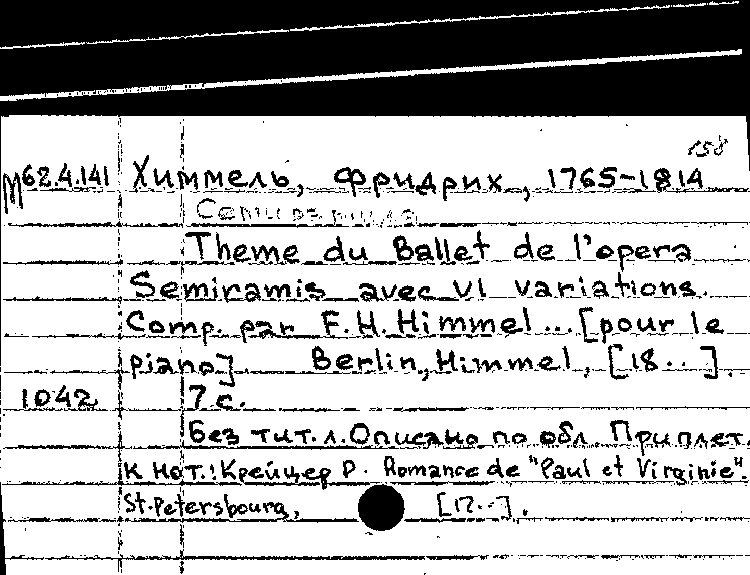 158
M62.4.141 Химмель, Фридрих, 1765-1814
Семирамида
Theme du Ballet de l'opera
Semiramis avec VI variations.
Comp. par F.H. Himmel... [pour le
piano]. Berlin, Himmel, [18..].
1042 7 с.
Без тит.л. Описано по обл. Приплет.
к нот.: Крейцер Р. Romance de "Paul et Virginie".
St.-Petersbourg, [17..].